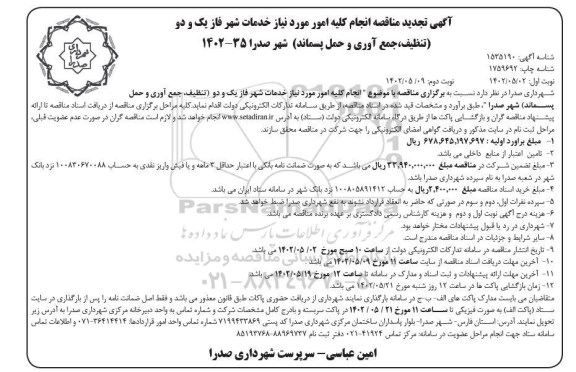 آگهی تجدید مناقصه انجام کلیه امور مورد نیاز خدمات شهر فاز یک و دو
(تنظیف،جمع آوری و حمل پسماند) شهر صدرا ۳۵-۱۴۰۲
شناسه آگهی: ۱۵۳۵۱۹۰
شناسه چاپ: ۱۷۵۹۶۹۲
نوبت اول: ۱۴۰۲/۰۵/۰۲ نوبت دوم: ۱۴۰۲/۰۵/۰۹
شهرداری صدرا در نظر دارد نسبت به برگزاری مناقصه با موضوع " انجام کلیه امور مورد نیاز خدمات شهر فاز یک و دو (تنظیف، جمع آوری و حمل
پسماند) شهر صدرا "، طبق برآورد و مشخصات قید شده در اسناد مناقصه، از طریق سامانه تدارکات الکترونیکی دولت اقدام نماید. کلیه مراحل برگزاری مناقصه از دریافت اسناد مناقصه تا ارائه
پیشنهاد مناقصه گران و بازگشایی پاکت ها از طریق درگاه سامانه الکترونیکی دولت (ستاد) به آدرس www.setadiran.ir انجام خواهد شد و لازم است مناقصه گران در صورت عدم عضویت قبلی،
مراحل ثبت نام در سایت مذکور و دریافت گواهی امضای الکترونیکی را جهت شرکت در مناقصه محقق سازند.
۱- مبلغ برآورد اولیه : ۶۷۸,۶۴۵,۱۹۷,۶۹۷ ریال
۲- تامین اعتبار از منابع داخلی می باشد.
۳- مبلغ تضمین شرکت در مناقصه مبلغ ۳۳,۹۴۰,۰۰۰,۰۰۰ ریال می باشد که به صورت ضمانت نامه بانکی با اعتبار حداقل ۳ ماهه و یا فیش واریز نقدی به حساب ۱۰۰۸۳۰۶۷۰۰۸۸ نزد بانک
شهر در شعبه صدرا به نام سپرده شهرداری صدرا باشد.
۴- مبلغ خرید اسناد مناقصه مبلغ ۲,۴۰۰,۰۰۰ریال به حساب ۱۰۰۸۰۵۸۹۱۴۱۲ نزد بانک شهر در سامانه ستاد ایران می باشد.
۵- سپرده نفرات اول، دوم و سوم در صورتی که حاضر به انعقاد قرارداد نشوند به نفع شهرداری صدرا ضبط خواهد شد.
۶- هزینه درج آگهی نوبت اول و دوم و هزینه کارشناس رسمی دادگستری بر عهده برنده مناقصه می باشد.
۷- شهرداری در رد یا قبول پیشنهادات مختار خواهد بود.
۸- سایر شرایط و جزئیات در اسناد مناقصه مندرج است.
۹- تاریخ انتشار مناقصه در سامانه تدارکات الکترونیکی دولت از ساعت ۱۰ صبح مورخ ۱۴۰۲/۰۵/۰۲ می باشد.
۱۰- آخرین مهلت دریافت اسناد مناقصه از سایت ساعت ۱۱ مورخ ۱۴۰۲/۰۵/۰۹ می باشد.
۱۱- آخرین مهلت ارائه پیشنهادات و ثبت اسناد و مدارک در سامانه تا ساعت ۱۲ مورخ ۱۴۰۲/۰۵/۱۹ می باشد.
۱۲- زمان بازگشایی پاکت ها در ساعت ۱۲ روز شنبه مورخ ۱۴۰۲/۰۵/۲۱ می باشد.
متقاضیان می بایست مدارک پاکت های الف- ب-ج در سامانه بارگذاری نمایند شهرداری از دریافت حضوری پاکات طبق قانون معذور می باشد و فقط اصل ضمانت نامه را پس از بارگذاری در سایت
ستاد (پاکت الف) به صورت فیزیکی تا ساعت ۱۱ مورخ ۲۱ / ۰۵ / ۱۴۰۲ در پاکت سربسته و بادرج کامل مشخصات شرکت و شماره تماس به واحد دبیرخانه مرکزی شهرداری صدرا به آدرس زیر
تحویل نمایند. آدرس: استان فارس- شهر صدرا-بلوار پاسداران ساختمان مرکزی شهرداری صدرا کد پستی ۷۱۹۹۴۳۳۸۶۹ شماره تماس واحد امور قراردادها: ۳۶۴۱۴۴۱۴-۰۷۱ و اطلاعات تماس
سامانه ستاد جهت انجام مراحل عضویت در سامانه: مرکز تماس ۴۱۹۳۴-۰۲۱ دفتر ثبت نام ۸۸۹۶۹۷۳۷-۸۵۱۹۳۷۶۸
امین عباسی- سرپرست شهرداری صدرا